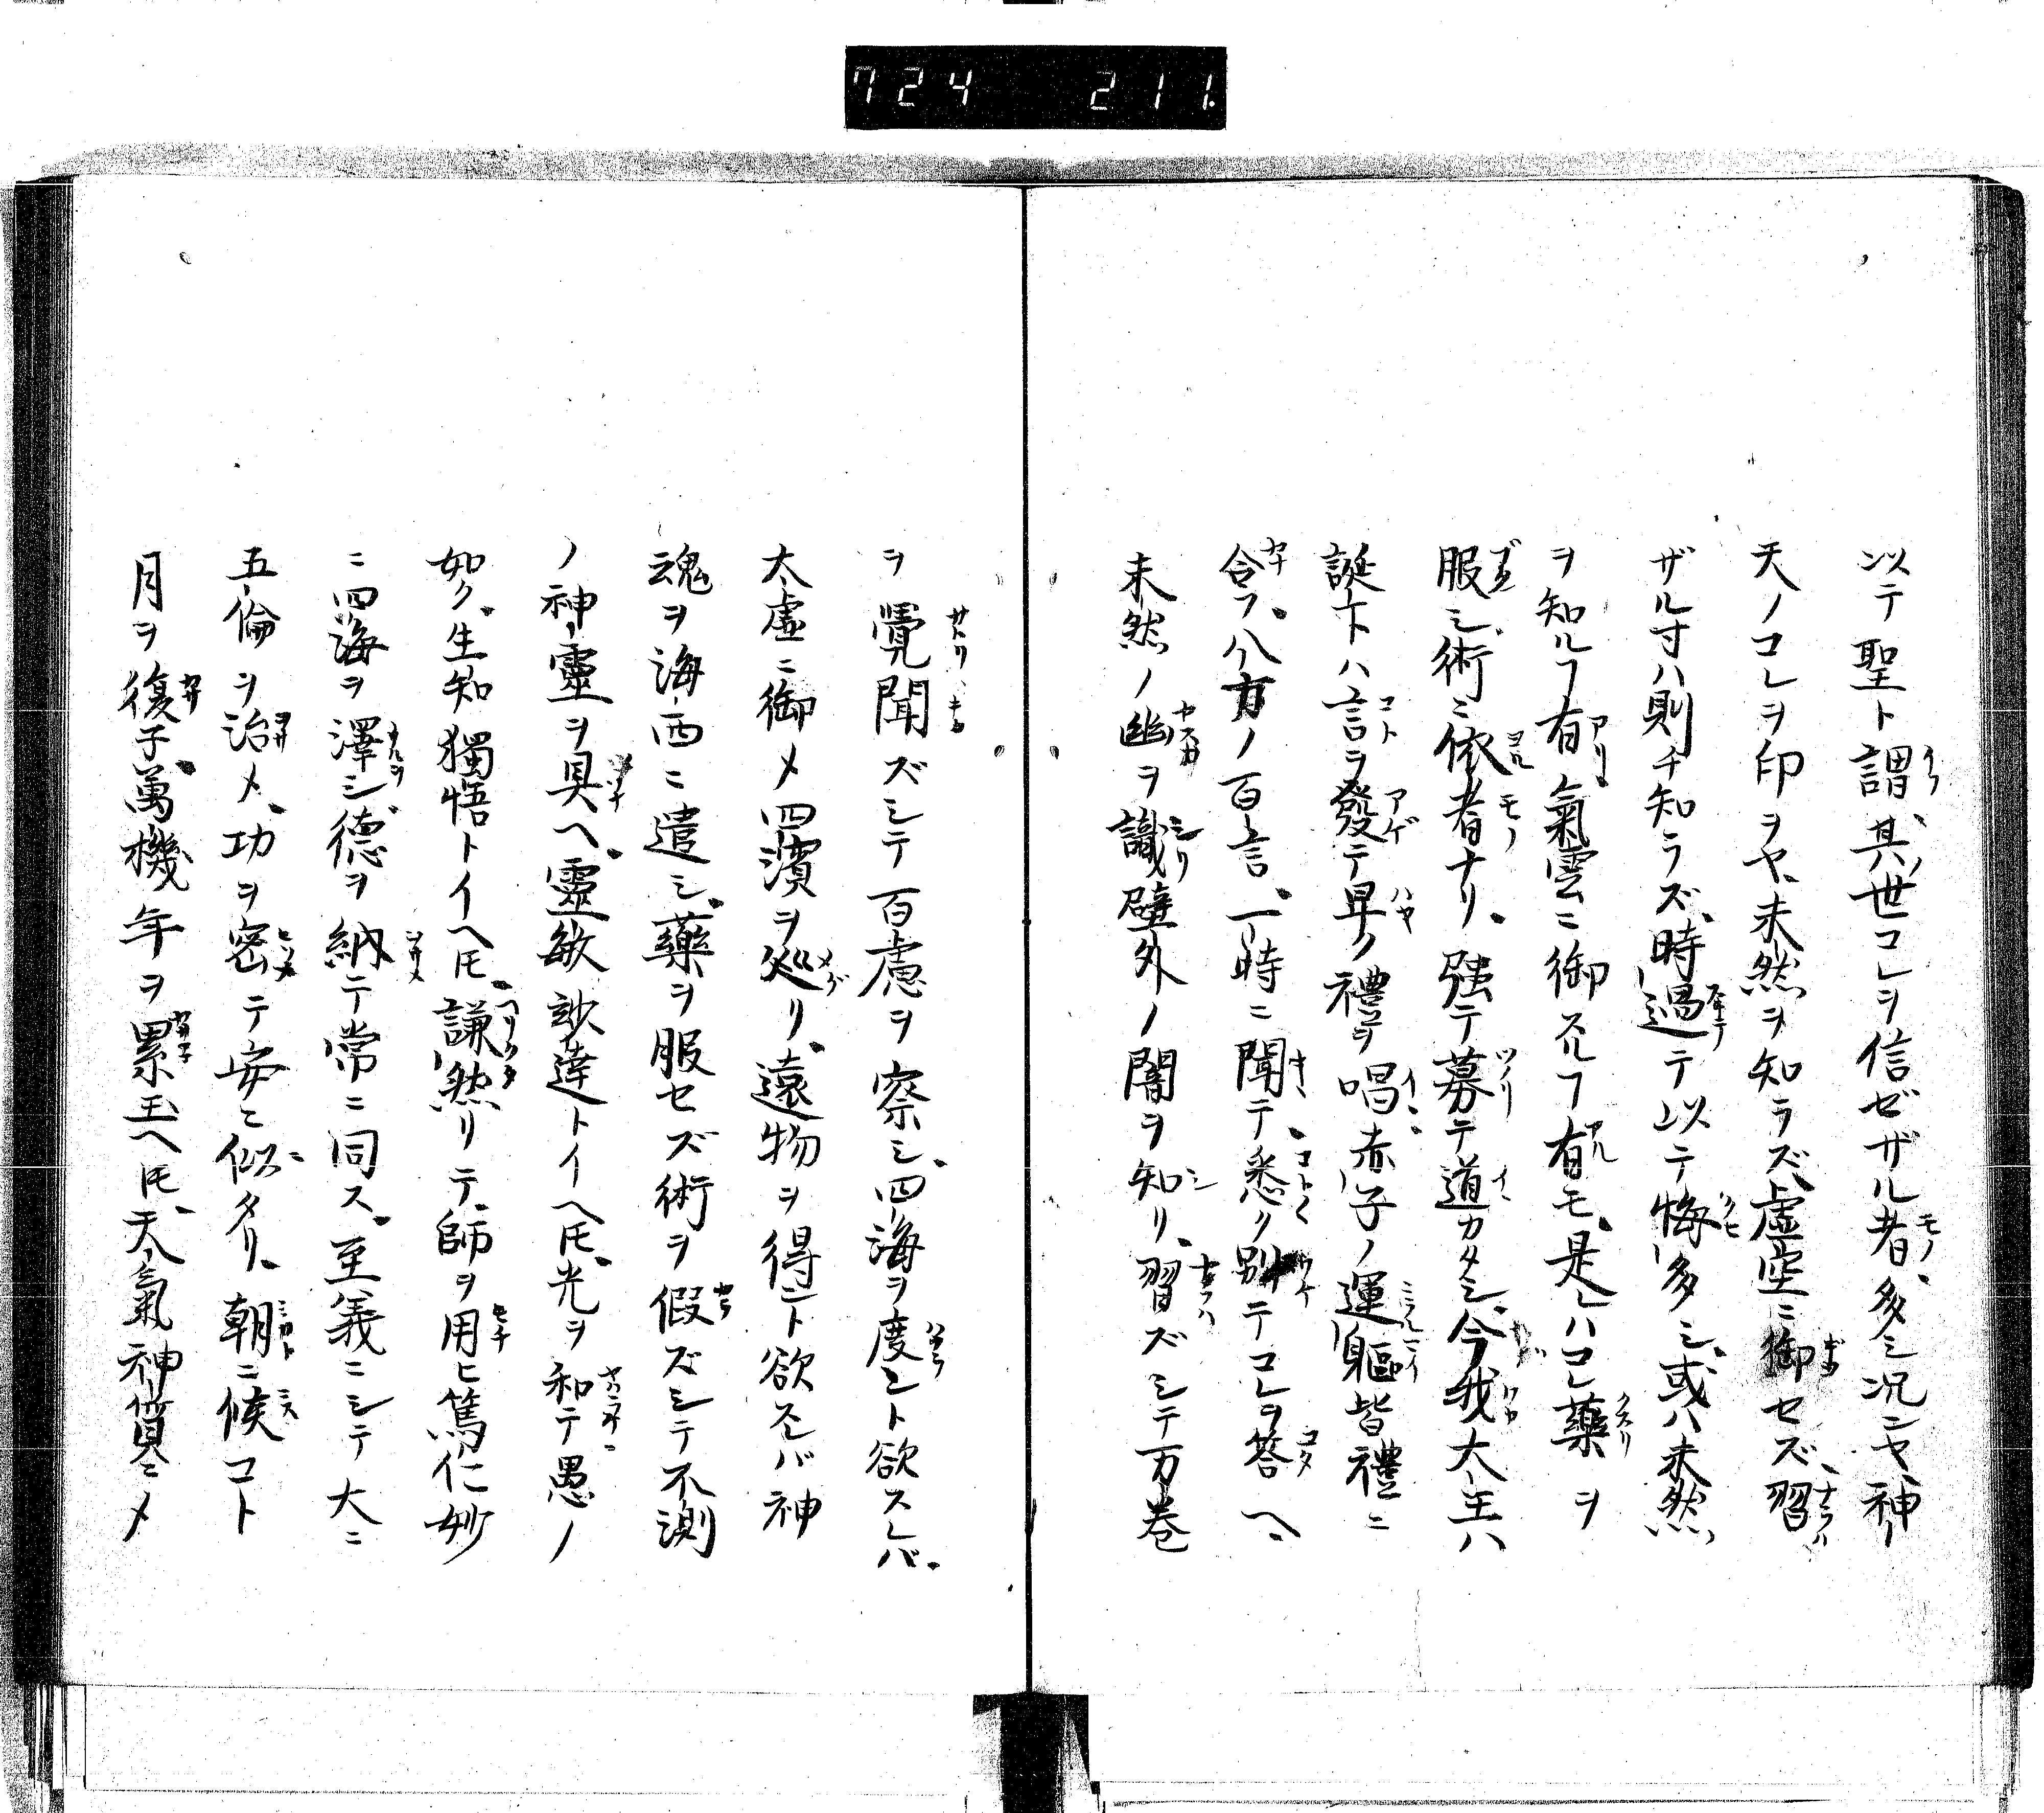 724 211
以テ聖ト謂、其ノ世コレヲ信ゼザル者多シ况ンヤ、神ノ
天ノコレヲ印ヲヤ、未然ヲ知ラズ虚空ニ御セズ、習
ザル寸ハ則チ知ラズ、時過テ以テ悔多シ、或ハ未然
ヲ知ルヿ有氣雲ニ御スルヿ有モ、是レハコレ藥ヲ
服シ術ニ依者ナリ、强テ募テ道カタシ、今我大王ハ
誕下ハ言ヲ發テ早ク禮ヲ唱赤子ノ運軀皆禮ニ
合フ、八方ノ百言、一時ニ聞テ、悉ク別テコレヲ答ヘ、
未然ノ幽ヲ識壁外ノ闇ヲ知リ、習ズシテ万巻
ヲ覺聞ズシテ百慮ヲ察シ、四海ヲ度ント欲スレバ、
太虚ニ御メ四濱ヲ巡リ、遠物ヲ得ント欲スレバ神
魂ヲ海西ニ遣シ、藥ヲ服セズ術ヲ假ズシテ不測
ノ神靈ヲ具ヘ、靈敏訬達トイヘ𪜈、光ヲ和テ愚ノ
如ク、生知獨悟トイヘ𪜈、謙然リテ、師ヲ用ヒ篤仁妙
ニ四海ヲ澤シ、德ヲ納テ常ニ同ス、至義ニシテ大ニ
五倫ヲ治メ、功ヲ密テ安ニ似タリ、朝ニ候コト
月ヲ復子、萬機年ヲ累玉ヘ𪜈、天氣神質ニメ